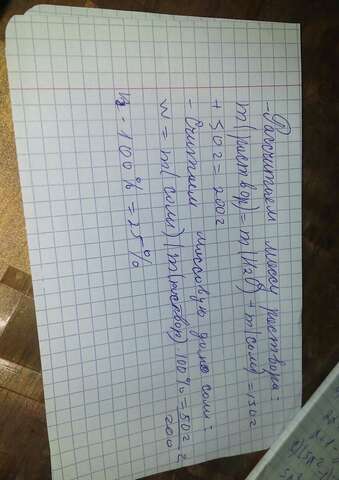 - Рассчитаем массу раствора:
m(раствор) = m(H₂O) + m(соли) = 150г
+ 50г = 200г
- Считаем массовую долю соли:
w = m(соли)/m(раствор) 100% = 50г/200г
· 100% = 25%